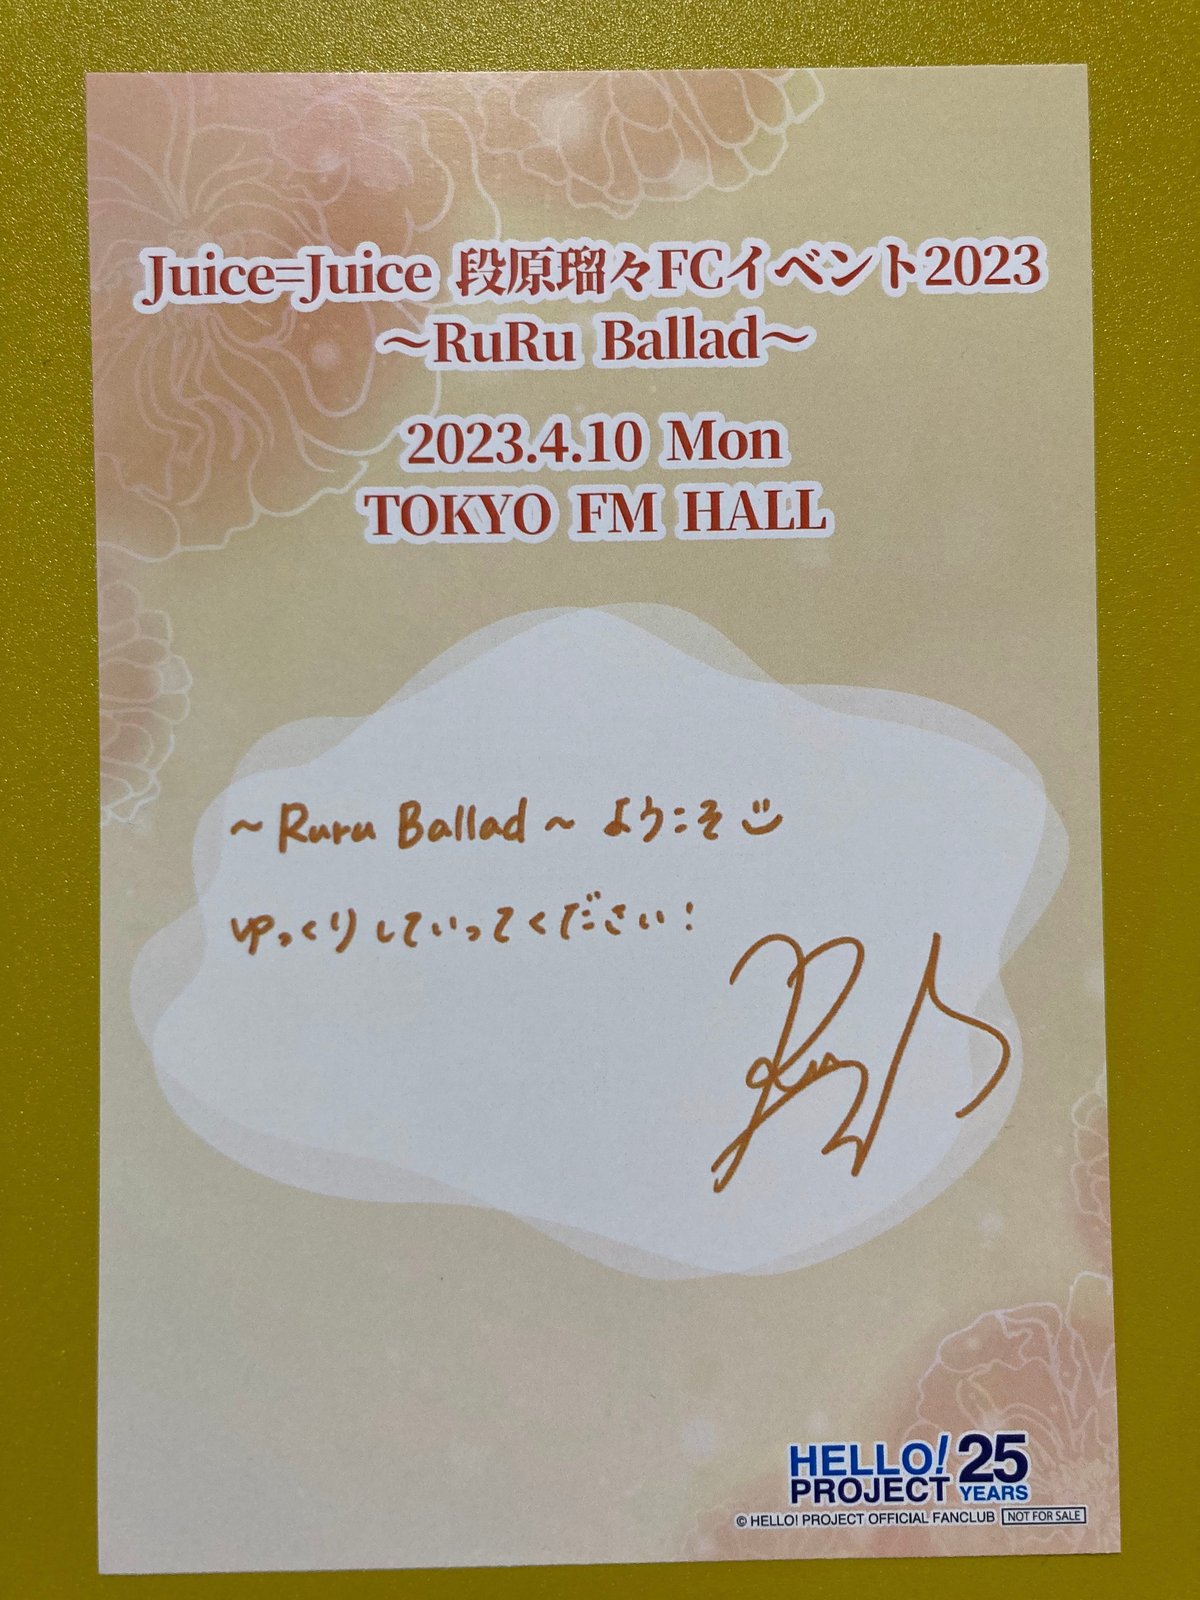 Juice=Juice 段原瑠々FCイベント2023
～RuRu Ballad～
2023.4.10 Mon
TOKYO FM HALL
～Ruru Ballad～ ようこそ
ゆっくりしていってください！
HELLO! PROJECT 25 YEARS
© HELLO! PROJECT OFFICIAL FANCLUB NOT FOR SALE